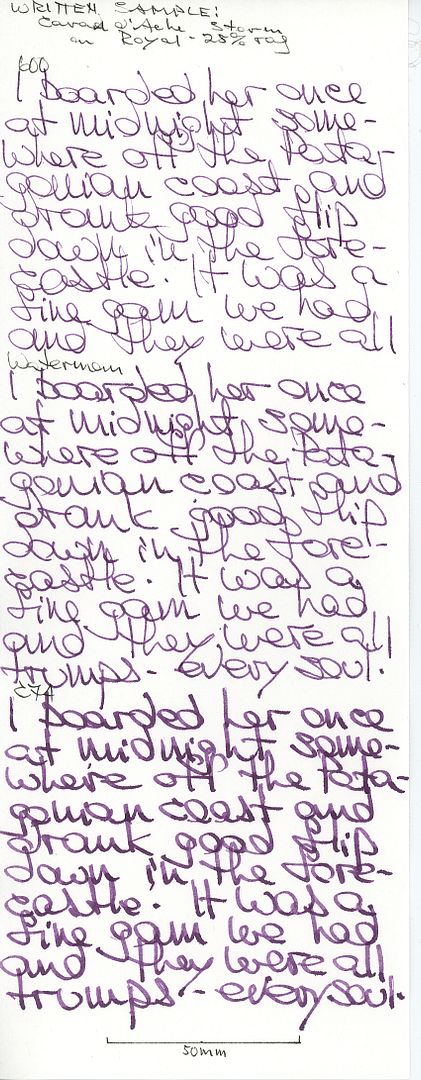 WRITTEN SAMPLE:
Caran d'Ache Storm
on Royal - 25% rag
600
I boarded her once
at midnight some-
where off the Pata-
gonian coast, and
drank good flip
down in the fore-
castle. It was a
fine gam we had
and they were all
Waterman
I boarded her once
at midnight some-
where off the Pata-
gonian coast and
drank good flip
down in the fore-
castle. It was a
fine gam we had
and they were all
trumps - every soul.
C74
I boarded her once
at midnight some-
where off the Pata-
gonian coast and
drank good flip
down in the fore-
castle. It was a
fine gam we had
and they were all
trumps - every soul.
50mm